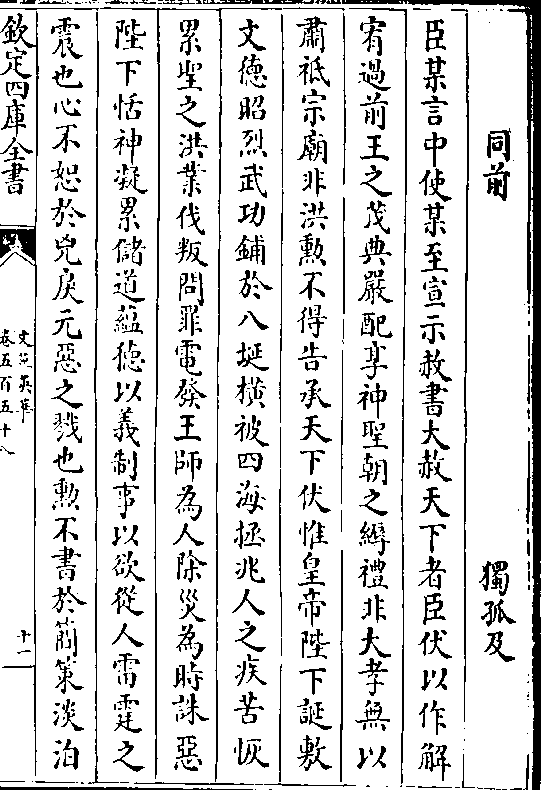 同前　獨孤及
臣某言中使某至宣示赦書大赦天下者臣伏以作解
宥過前王之茂典嚴配享神聖朝之縟禮非大孝無以
肅祗宗廟非洪勲不得告承天下伏惟皇帝陛下誕敷
文德昭烈武功鋪於八埏橫被四海拯兆人之疾苦恢
累聖之洪業伐叛問罪電發王師為人除災為時誅惡
陛下恬神凝累儲道蘊德以義制事以欲從人雷霆之
震也心不恕於兇戾元惡之戮也勲不書於簡策淡泊
欽定四庫全書
文苑英華
卷五百五十八
十一